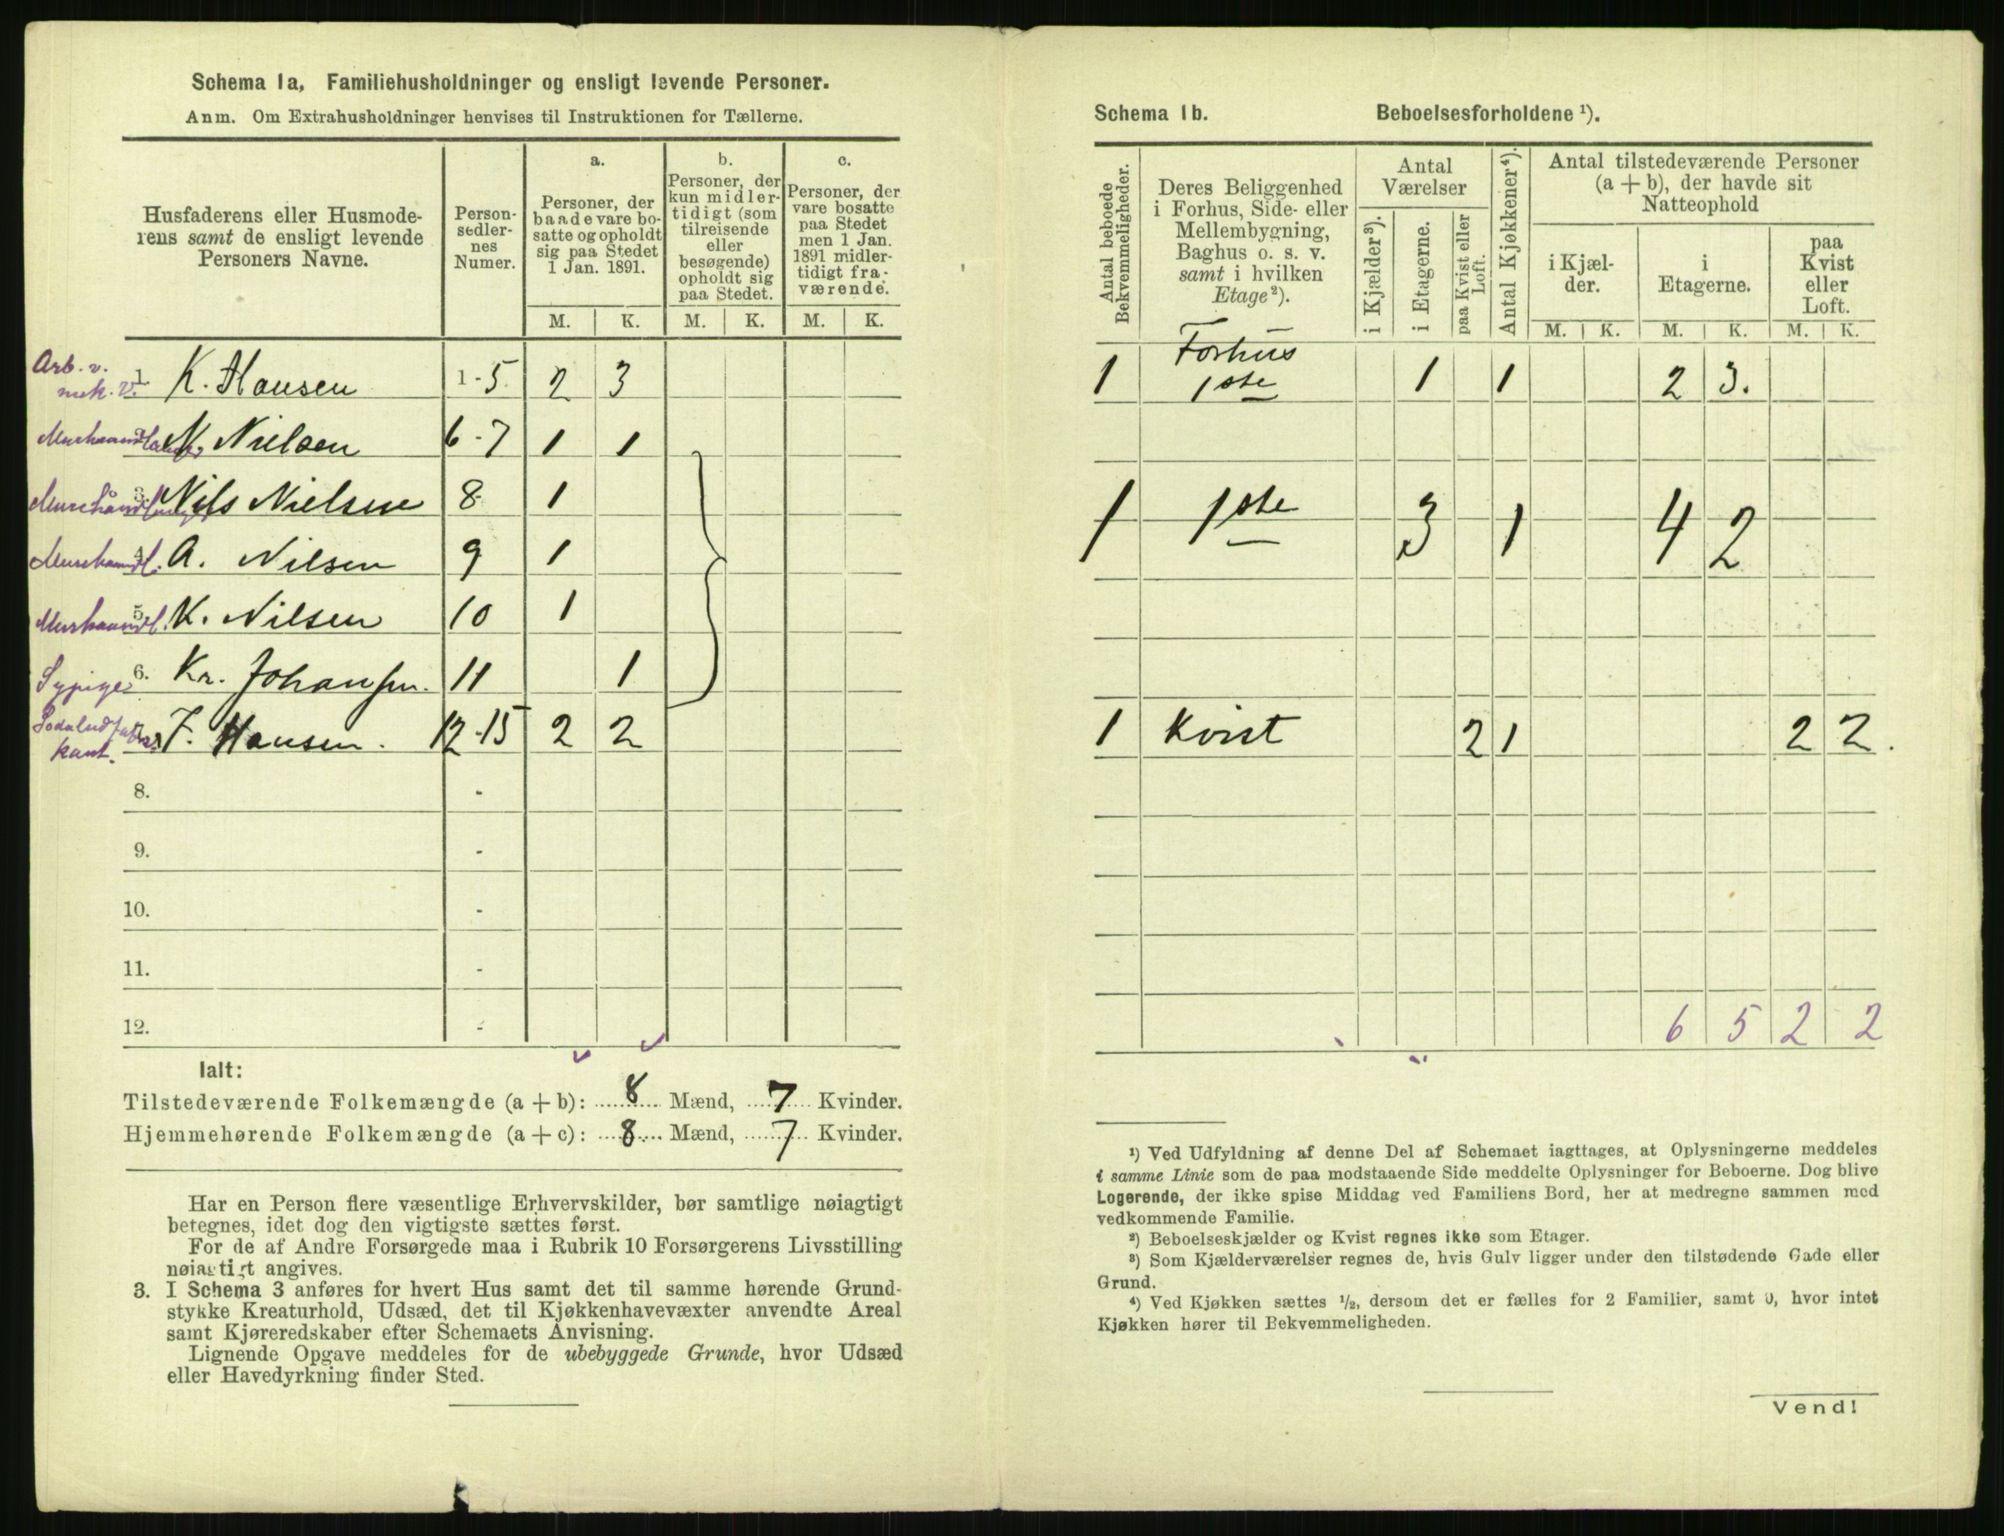 Schema 1a, Familiehusholdninger og ensligt levende Personer.
Anm. Om Extrahusholdninger henvises til Instruktionen for Tællerne.
Husfaderens eller Husmoderens samt de ensligt levende Personers Navne.
Person-
sedler-
nes
Numer.
a.
Personer, der
baade vare bo-
satte og opholdt
sig paa Stedet
1 Jan. 1891.
b.
Personer, der
kun midler-
tidigt (som
tilreisende
eller
besøgende)
opholdt sig
paa Stedet.
c.
Personer, der
vare bosatte
paa Stedet
men 1 Jan.
1891 midler-
tidigt fra-
værende.
M. K. M. K. M. K.
Arb. v. mek. V. 1. K. Hansen 1-5 2 3
2. N. Nielsen 6-7 1 1
3. Nils Nielsen 8 1
Murhaandl. 4. A. Nilsen 9 1
Murhaandl. 5. K. Nilsen 10 1
Sypige 6. Kr. Johansen. 11 1
7. Hansen. 12-15 2 2
8. -
9. -
10. -
11. -
12. -
Ialt:
Tilstedeværende Folkemængde (a + b): 8 Mænd, 7 Kvinder.
Hjemmehørende Folkemængde (a + c): 8 Mænd, 7 Kvinder.
Har en Person flere væsentlige Erhvervskilder, bør samtlige nøiagtigt
betegnes, idet dog den vigtigste sættes først.
For de af Andre Forsørgede maa i Rubrik 10 Forsørgerens Livsstilling
nøiagtigt angives.
3. I Schema 3 anføres for hvert Hus samt det til samme hørende Grund-
stykke Kreaturhold, Udsæd, det til Kjøkkenhavevæxter anvendte Areal
samt Kjøreredskaber efter Schemaets Anvisning.
Lignende Opgave meddeles for de ubebyggede Grunde, hvor Udsæd
eller Havedyrkning finder Sted.
Schema 1b. Beboelsesforholdene ¹).
Antal beboede
Bekvemmeligheder.
Deres Beliggenhed
i Forhus, Side- eller
Mellembygning,
Baghus o. s. v.
samt i hvilken
Etage²).
Antal
Værelser
i Kjælder³).
i Etagerne.
paa Kvist eller
Loft.
Antal Kjøkkener⁴).
Antal tilstedeværende Personer
(a + b), der havde sit
Natteophold
i Kjæl-
der.
i
Etagerne.
paa
Kvist
eller
Loft.
M. K. M. K. M. K.
1 Forhus 1ste 1 1 2 3.
1 1ste 3 1 4 2
1 Kvist 2 1 2 2.
6 5 2 2
¹) Ved Udfyldning af denne Del af Schemaet iagttages, at Oplysningerne meddeles
i samme Linie som de paa modstaaende Side meddelte Oplysninger for Beboerne. Dog blive
Logerende, der ikke spise Middag ved Familiens Bord, her at medregne sammen med
vedkommende Familie.
²) Beboelseskjælder og Kvist regnes ikke som Etager.
³) Som Kjælderværelser regnes de, hvis Gulv ligger under den tilstødende Gade eller
Grund.
⁴) Ved Kjøkken sættes ½, dersom det er fælles for 2 Familier, samt 0, hvor intet
Kjøkken hører til Bekvemmeligheden.
Vend!